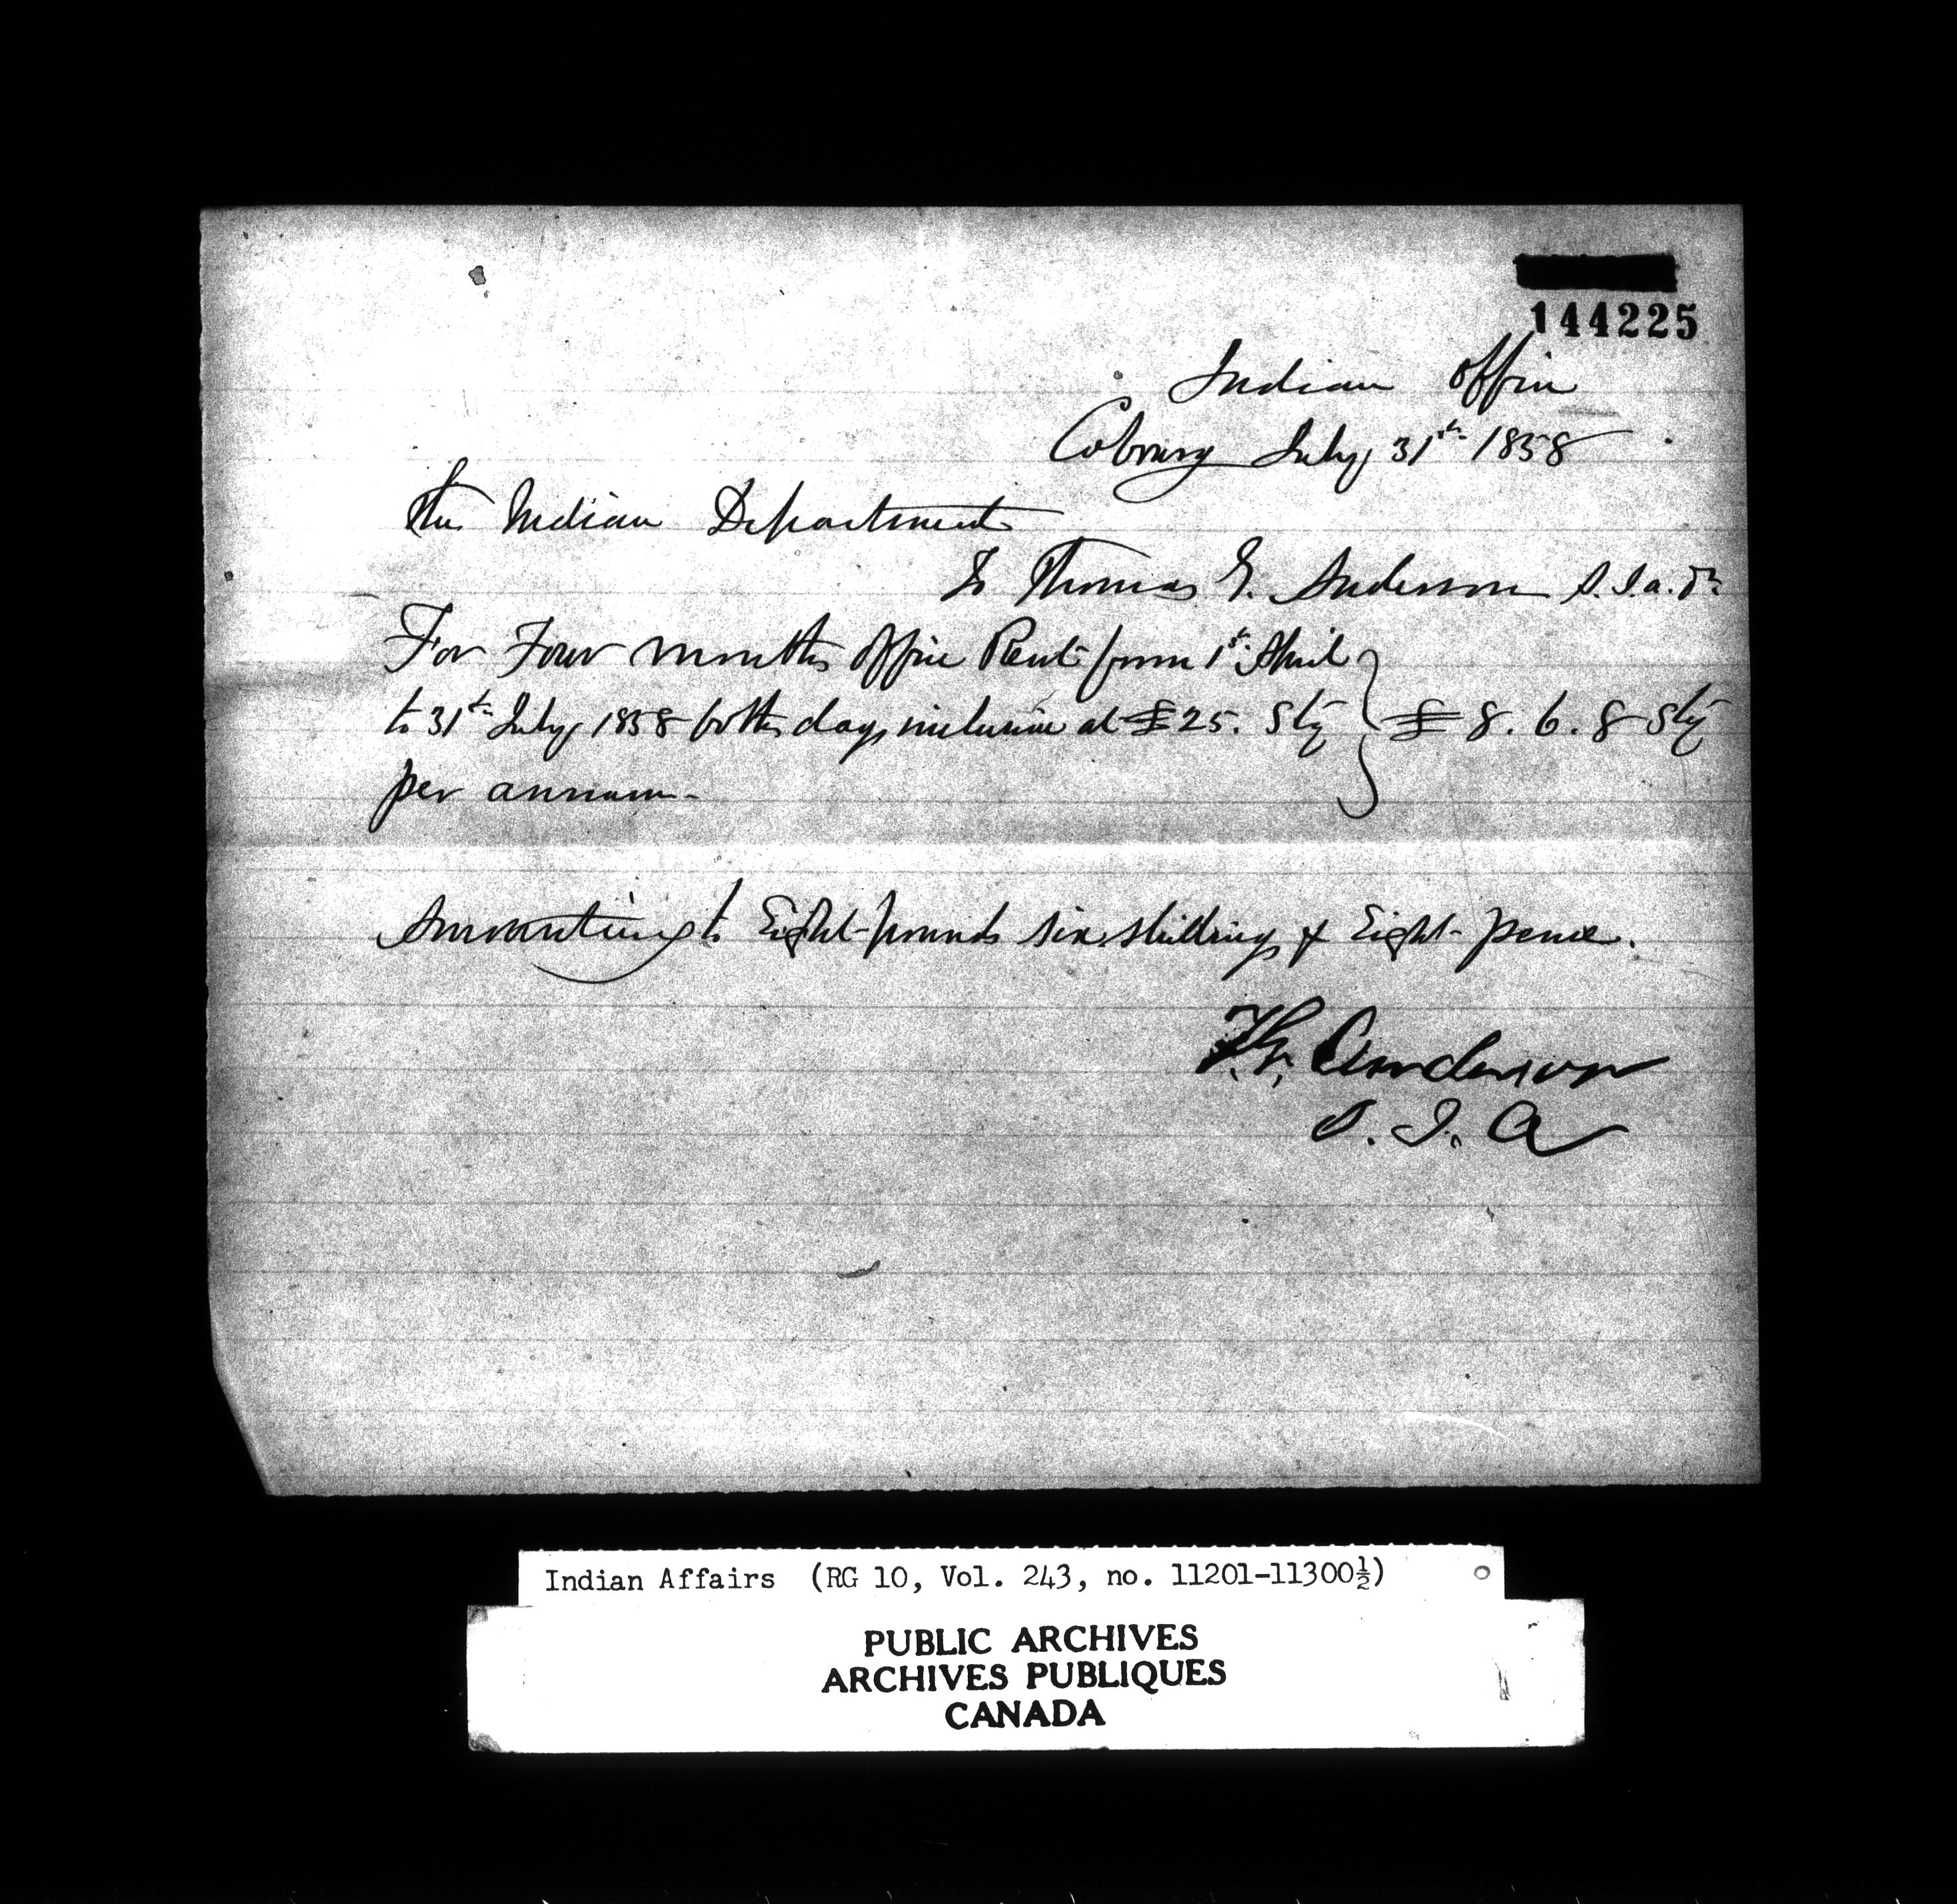 144225
Indian Office
Cobourg July 31th 1858
The Indian Department
To Thomas G. Anderson S.I.A. Dr
For Four months Office Rent from 1st April
to 31th July 1858 both days inclusive at £25. Stg £ 8. 6. 8 Stg
per annum-
Amounting to Eight pounds six shillings & Eight pence.
T.G. Anderson
S. I. A
Indian Affairs (RG 10, Vol. 243, no. 11201-11300½)
PUBLIC ARCHIVES
ARCHIVES PUBLIQUES
CANADA